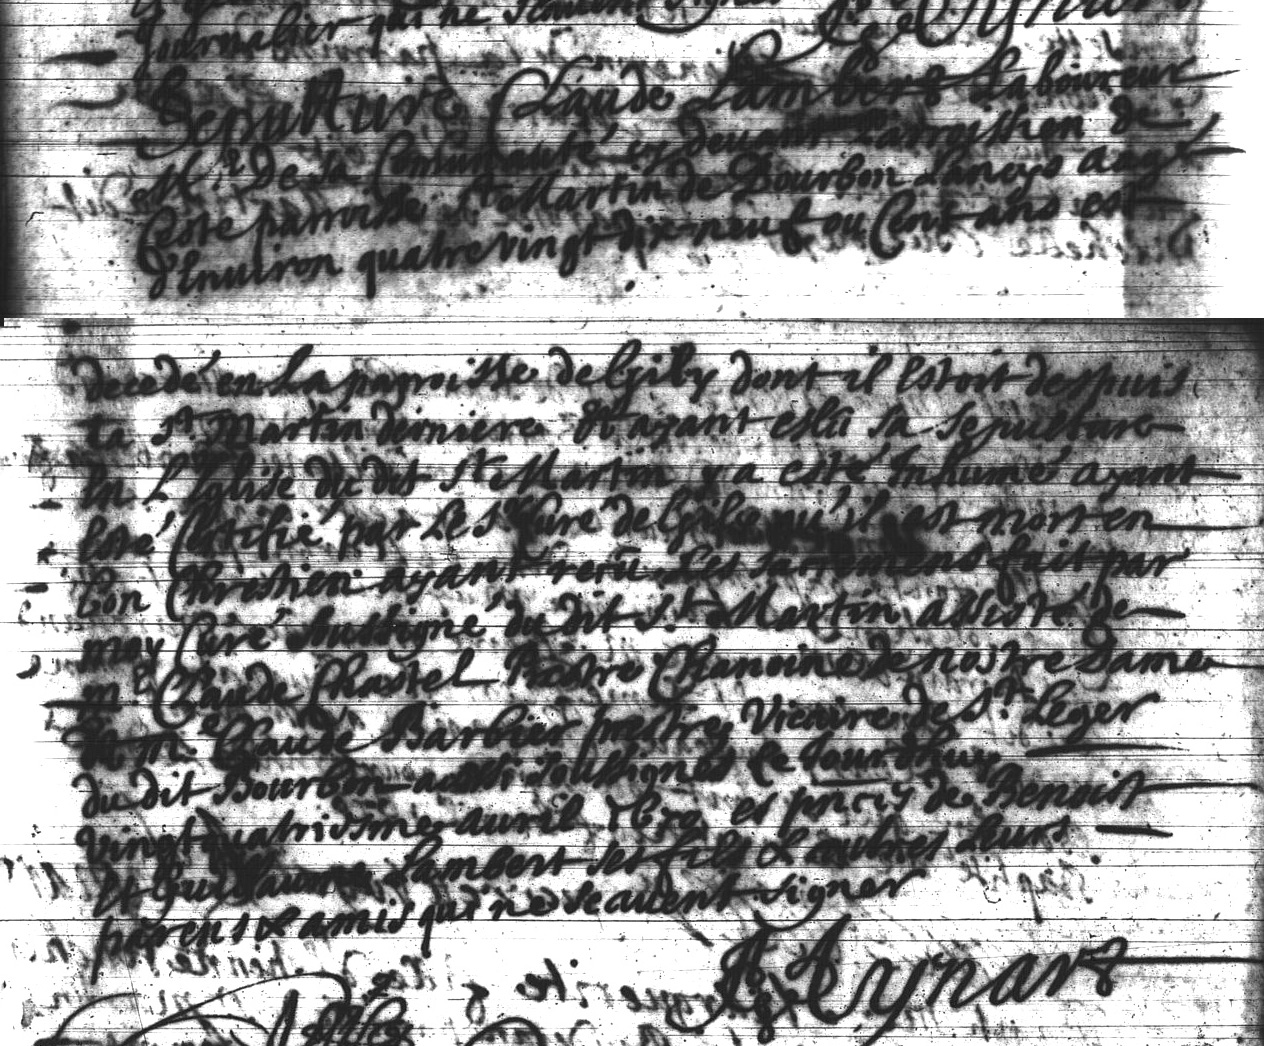 journalier qui ne sçauent signer
Sepulture Claude Lambert Laboureur
Mr de la Communauté cy deuant Parroissien de
ceste parroisse St Martin de Bourbon Lancys aagé
d'Enuiron quatre vingt dix neuf ou Cent ans est
decedé en La parroisse de Gilly dont il Estoit despuis
la St Martin derniere Et ayant eslû sa sepulture
En L'Eglise du dit St Martin y a esté Inhumé ayant
Esté Certifié par Le Sr Curé de Gilly qu'il est mort en
bon Chrestien ayant reçû Les sacremens fait par
moy Curé soussigné du dit St Martin assisté de
mre Claude Chastel Prestre Chanoine de nostre Dame
Et mre Claude Barbier prestre Vicaire de St Leger
du dit Bourbon aussi soussignes Ce Jourdhuy
vingt quatriesme auril 1670 es pncs de Benoist
Et Guillaume Lambert ses fils & autres Leurs
parens & amis qui ne sçauent signer
Aynard